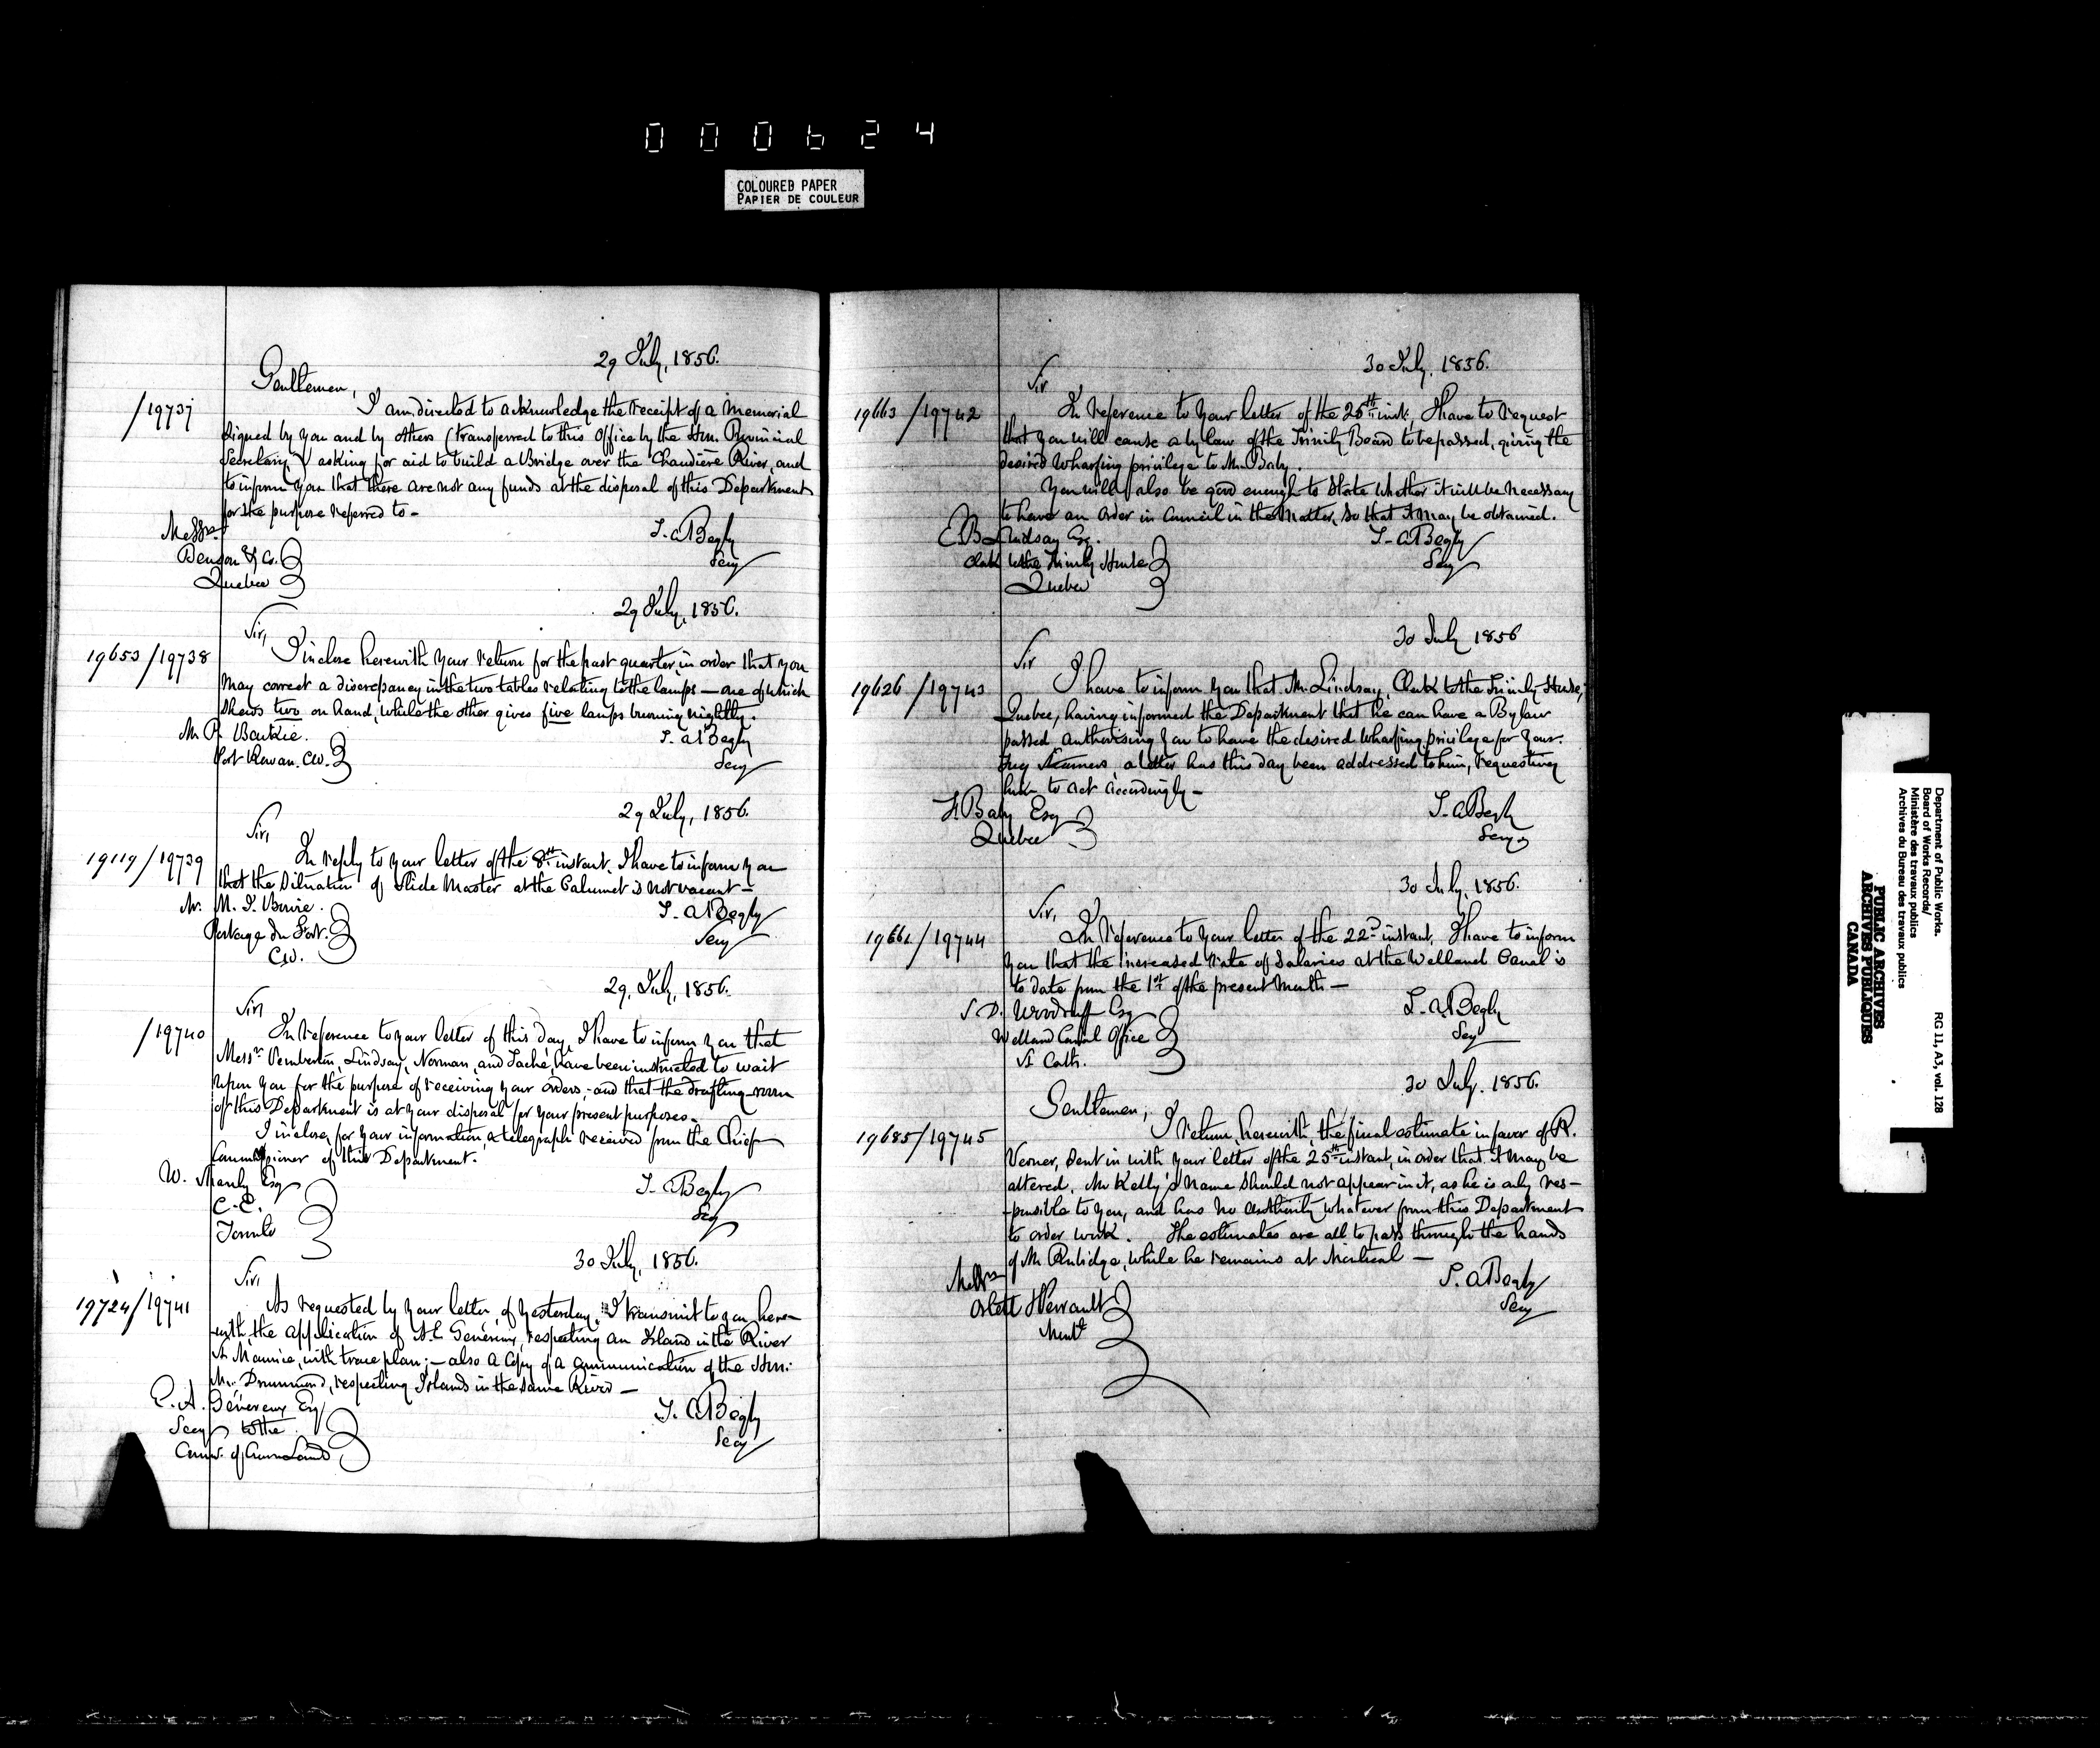 000624
COLOURED PAPER
PAPIER DE COULEUR
29 July, 1856.
Gentlemen,
/19737
I am directed to acknowledge the receipt of a Memorial
signed by you and by others (transferred to this Office by the Hon. Provincial
Secretary) asking for aid to build a Bridge over the Chaudière River, and
to inform you that there are not any funds at the disposal of this Department
for the purpose referred to -
Messrs
Benson & Co.
Quebec
T. A. Begly
Secy
29 July, 1856.
Sir,
19653/19738
I inclose herewith your return for the past quarter, in order that you
may correct a discrepancy in the two tables relating to the lamps — one of which
shows two on hand, while the other gives five lamps burning nightly.
Mr P. Baikie.
Port Rowan. CW.
T. A. Begly
Secy
29 July, 1856.
Sir,
19119/19739
In reply to your letter of the 8th instant, I have to inform you
that the situation of Slide Master at the Calumet is not vacant -
Mr. M. J. Bowie.
Portage du Fort.
CW.
T. A. Begly
Secy
29, July, 1856.
Sir,
/19740
In reference to your letter of this day, I have to inform you that
Messrs Pemberton, Lindsay, Norman, and Taché, have been instructed to wait
upon you for the purpose of receiving your orders, - and that the drafting-room
of this Department is at your disposal for your present purposes.
I inclose, for your information, a telegraph received from the Chief
Commissioner of this Department.
W. Shanly Esq
C.E.
Toronto
T. A. Begly
Secy
30 July, 1856.
Sir,
19724/19741
As requested by your letter, of yesterday, I transmit to you here-
-with the application of A. L. Genereux, respecting an Island in the River
St Maurice, with trace plan; - also a Copy of a communication of the Hon:
Mr. Drummond, respecting Islands in the same River -
E. A. Généreux Esq
Secy to the
Comr. of Crown Lands
T. A. Begly
Secy
30 July, 1856.
Sir
19663/19742
In reference to your letter of the 25th inst, I have to request
that you will cause a by law of the Trinity Board to be passed, giving the
desired Wharfing privilege to Mr. Baby.
You will also be good enough to state whether it will be necessary
to have an Order in Council in the Matter, so that it may be obtained.
E. B. Lindsay Esq.
Clerk to the Trinity House
Quebec
T. A. Begly
Secy
30 July 1856
Sir
19626/19743
I have to inform you that Mr. Lindsay, Clerk to the Trinity House,
Quebec, having informed the Department that he can have a By law
passed authorising you to have the desired Wharfing privilege for your
Tug Steamers, a letter has this day been addressed to him, requesting
him to act accordingly -
F. Baby Esq
Quebec
T. A. Begly
Secy
30 July, 1856.
Sir,
19661/19744
In reference to your letter of the 22d instant, I have to inform
you that the increased rate of Salaries at the Welland Canal is
to date from the 1st of the present Month -
S. D. Woodruff Esq
Welland Canal Office
St Cath.
T. A. Begly
Secy
30 July. 1856.
Gentlemen,
19685/19745
I return herewith, the final estimate in favor of R.
Verner, sent in with your letter of the 25th instant, in order that it may be
altered. Mr Kelly's name should not appear in it, as he is only res-
-ponsible to you, and has no authority whatever from this Department
to order work. The estimates are all to pass through the hands
of Mr. Rubidge, while he remains at Montreal -
Messrs
Ostell & Perrault
Montl
T. A. Begly
Secy
Department of Public Works.
Board of Works Records/
Ministère des travaux publics
Archives du Bureau des travaux publics
RG 11, A3, vol. 128
PUBLIC ARCHIVES
ARCHIVES PUBLIQUES
CANADA